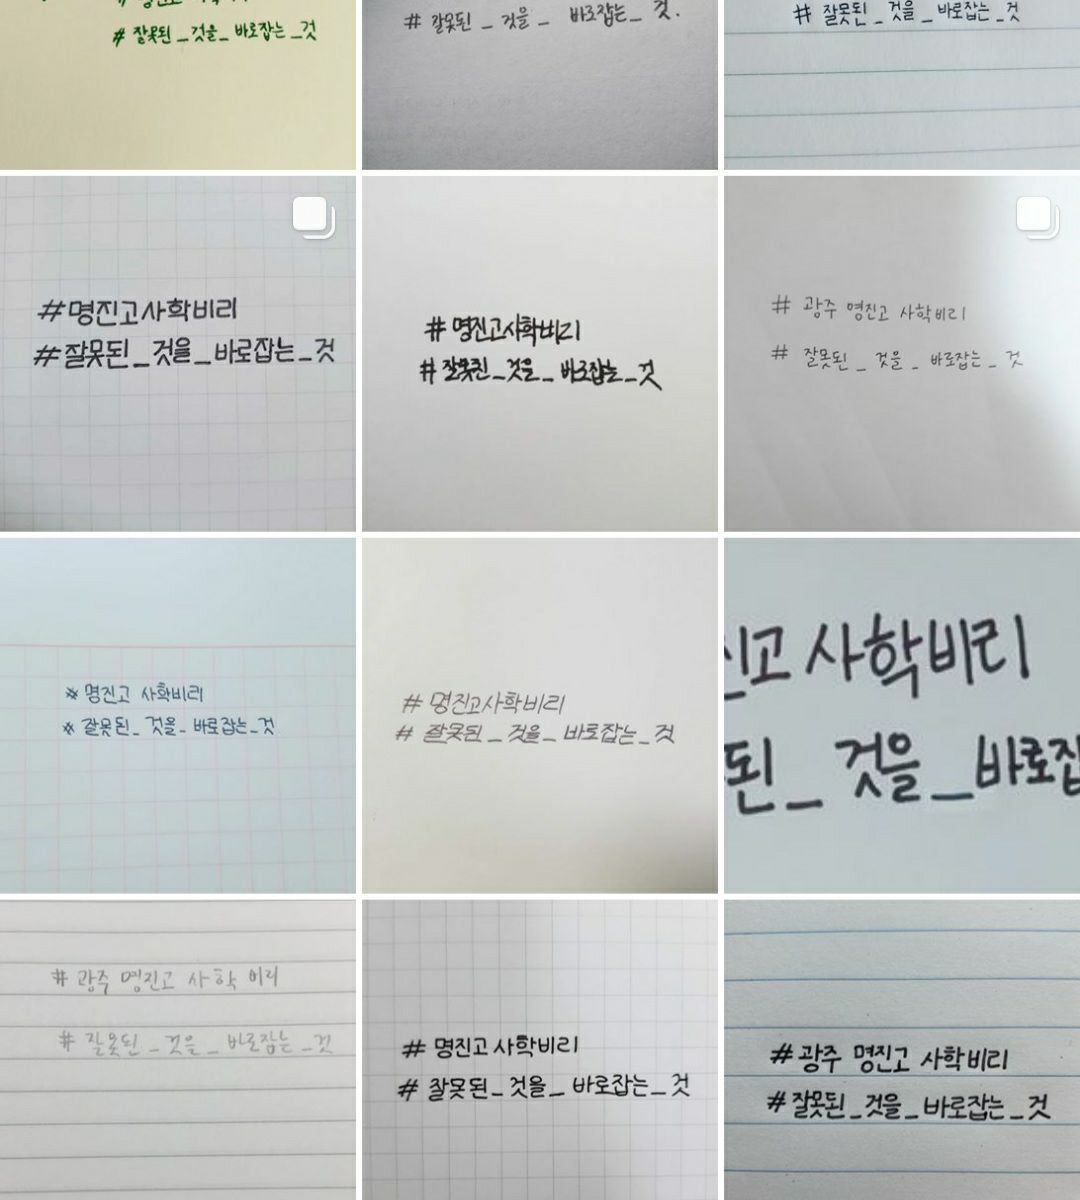 # 잘못된 _ 것을 _ 바로잡는 _ 것
# 잘못된 _ 것을 _ 바로잡는 _ 것.
# 잘못된 _ 것을 _ 바로잡는 _ 것
#명진고사학비리
#잘못된 _ 것을 _ 바로잡는 _ 것
# 명진고사학비리
# 잘못된 _ 것을 _ 바로잡는 _ 것
# 광주 명진고 사학비리
# 잘못된 _ 것을 _ 바로잡는 _ 것
* 명진고 사학비리
* 잘못된 _ 것을 _ 바로잡는 _ 것
# 명진고사학비리
# 잘못된 _ 것을 _ 바로잡는 _ 것
진고 사학비리
된 _ 것을 _ 바로잡
# 광주 명진고 사학 비리
# 잘못된 _ 것을 _ 바로잡는 _ 것
# 명진고 사학비리
# 잘못된 _ 것을 _ 바로잡는 _ 것
# 광주 명진고 사학비리
# 잘못된 _ 것을 _ 바로잡는 _ 것